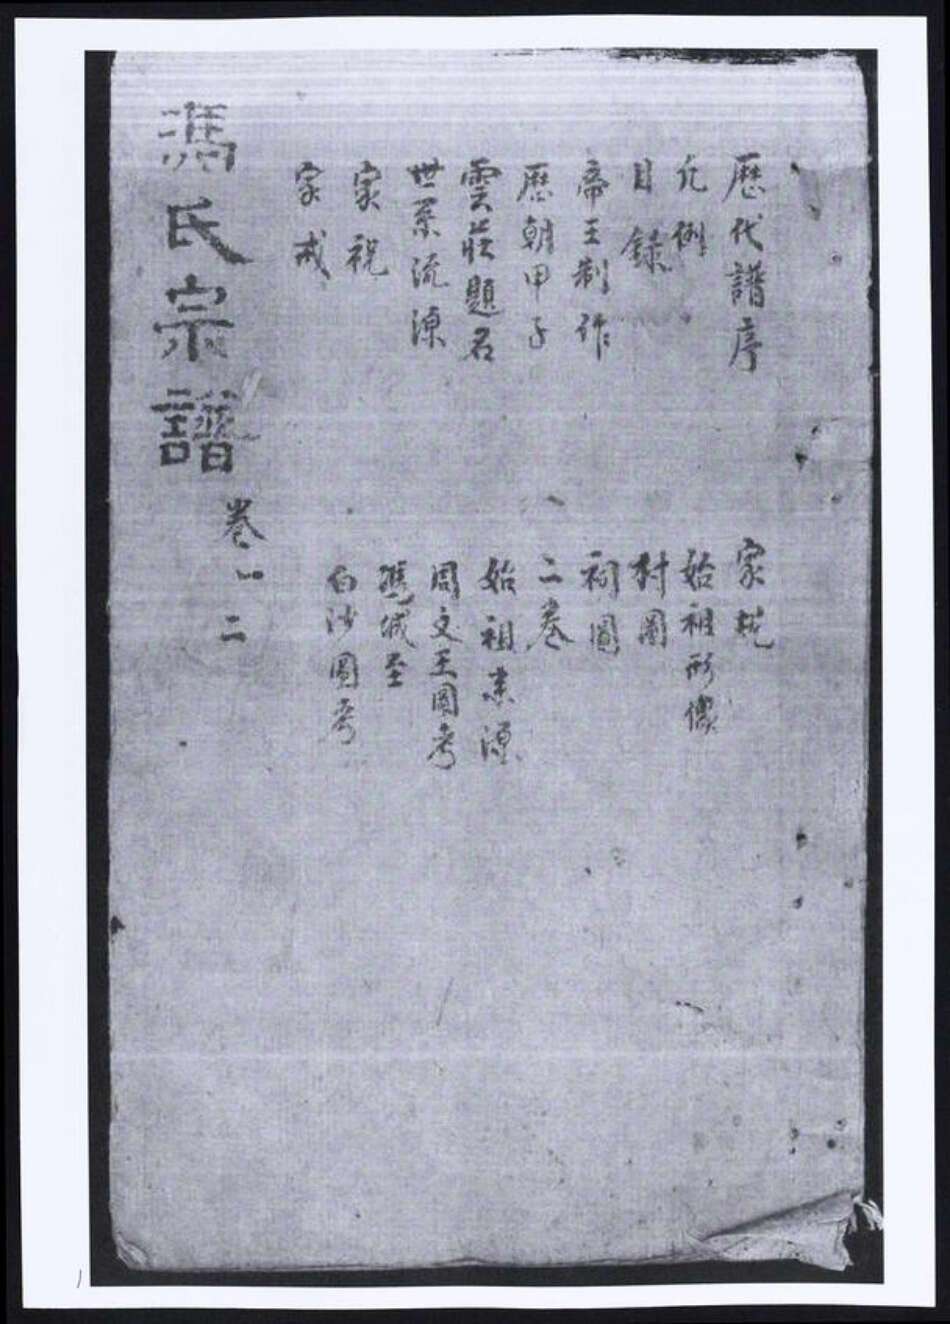 歷代譜序
凡例
目錄
帝王制作
歷朝甲子
雲莊題名
世系流源
家祝
家戒
家規
始祖形像
村圖
祠圖
二卷
始祖來源
周文王圖考
城至
白沙圖考
馮氏宗譜
卷一
二